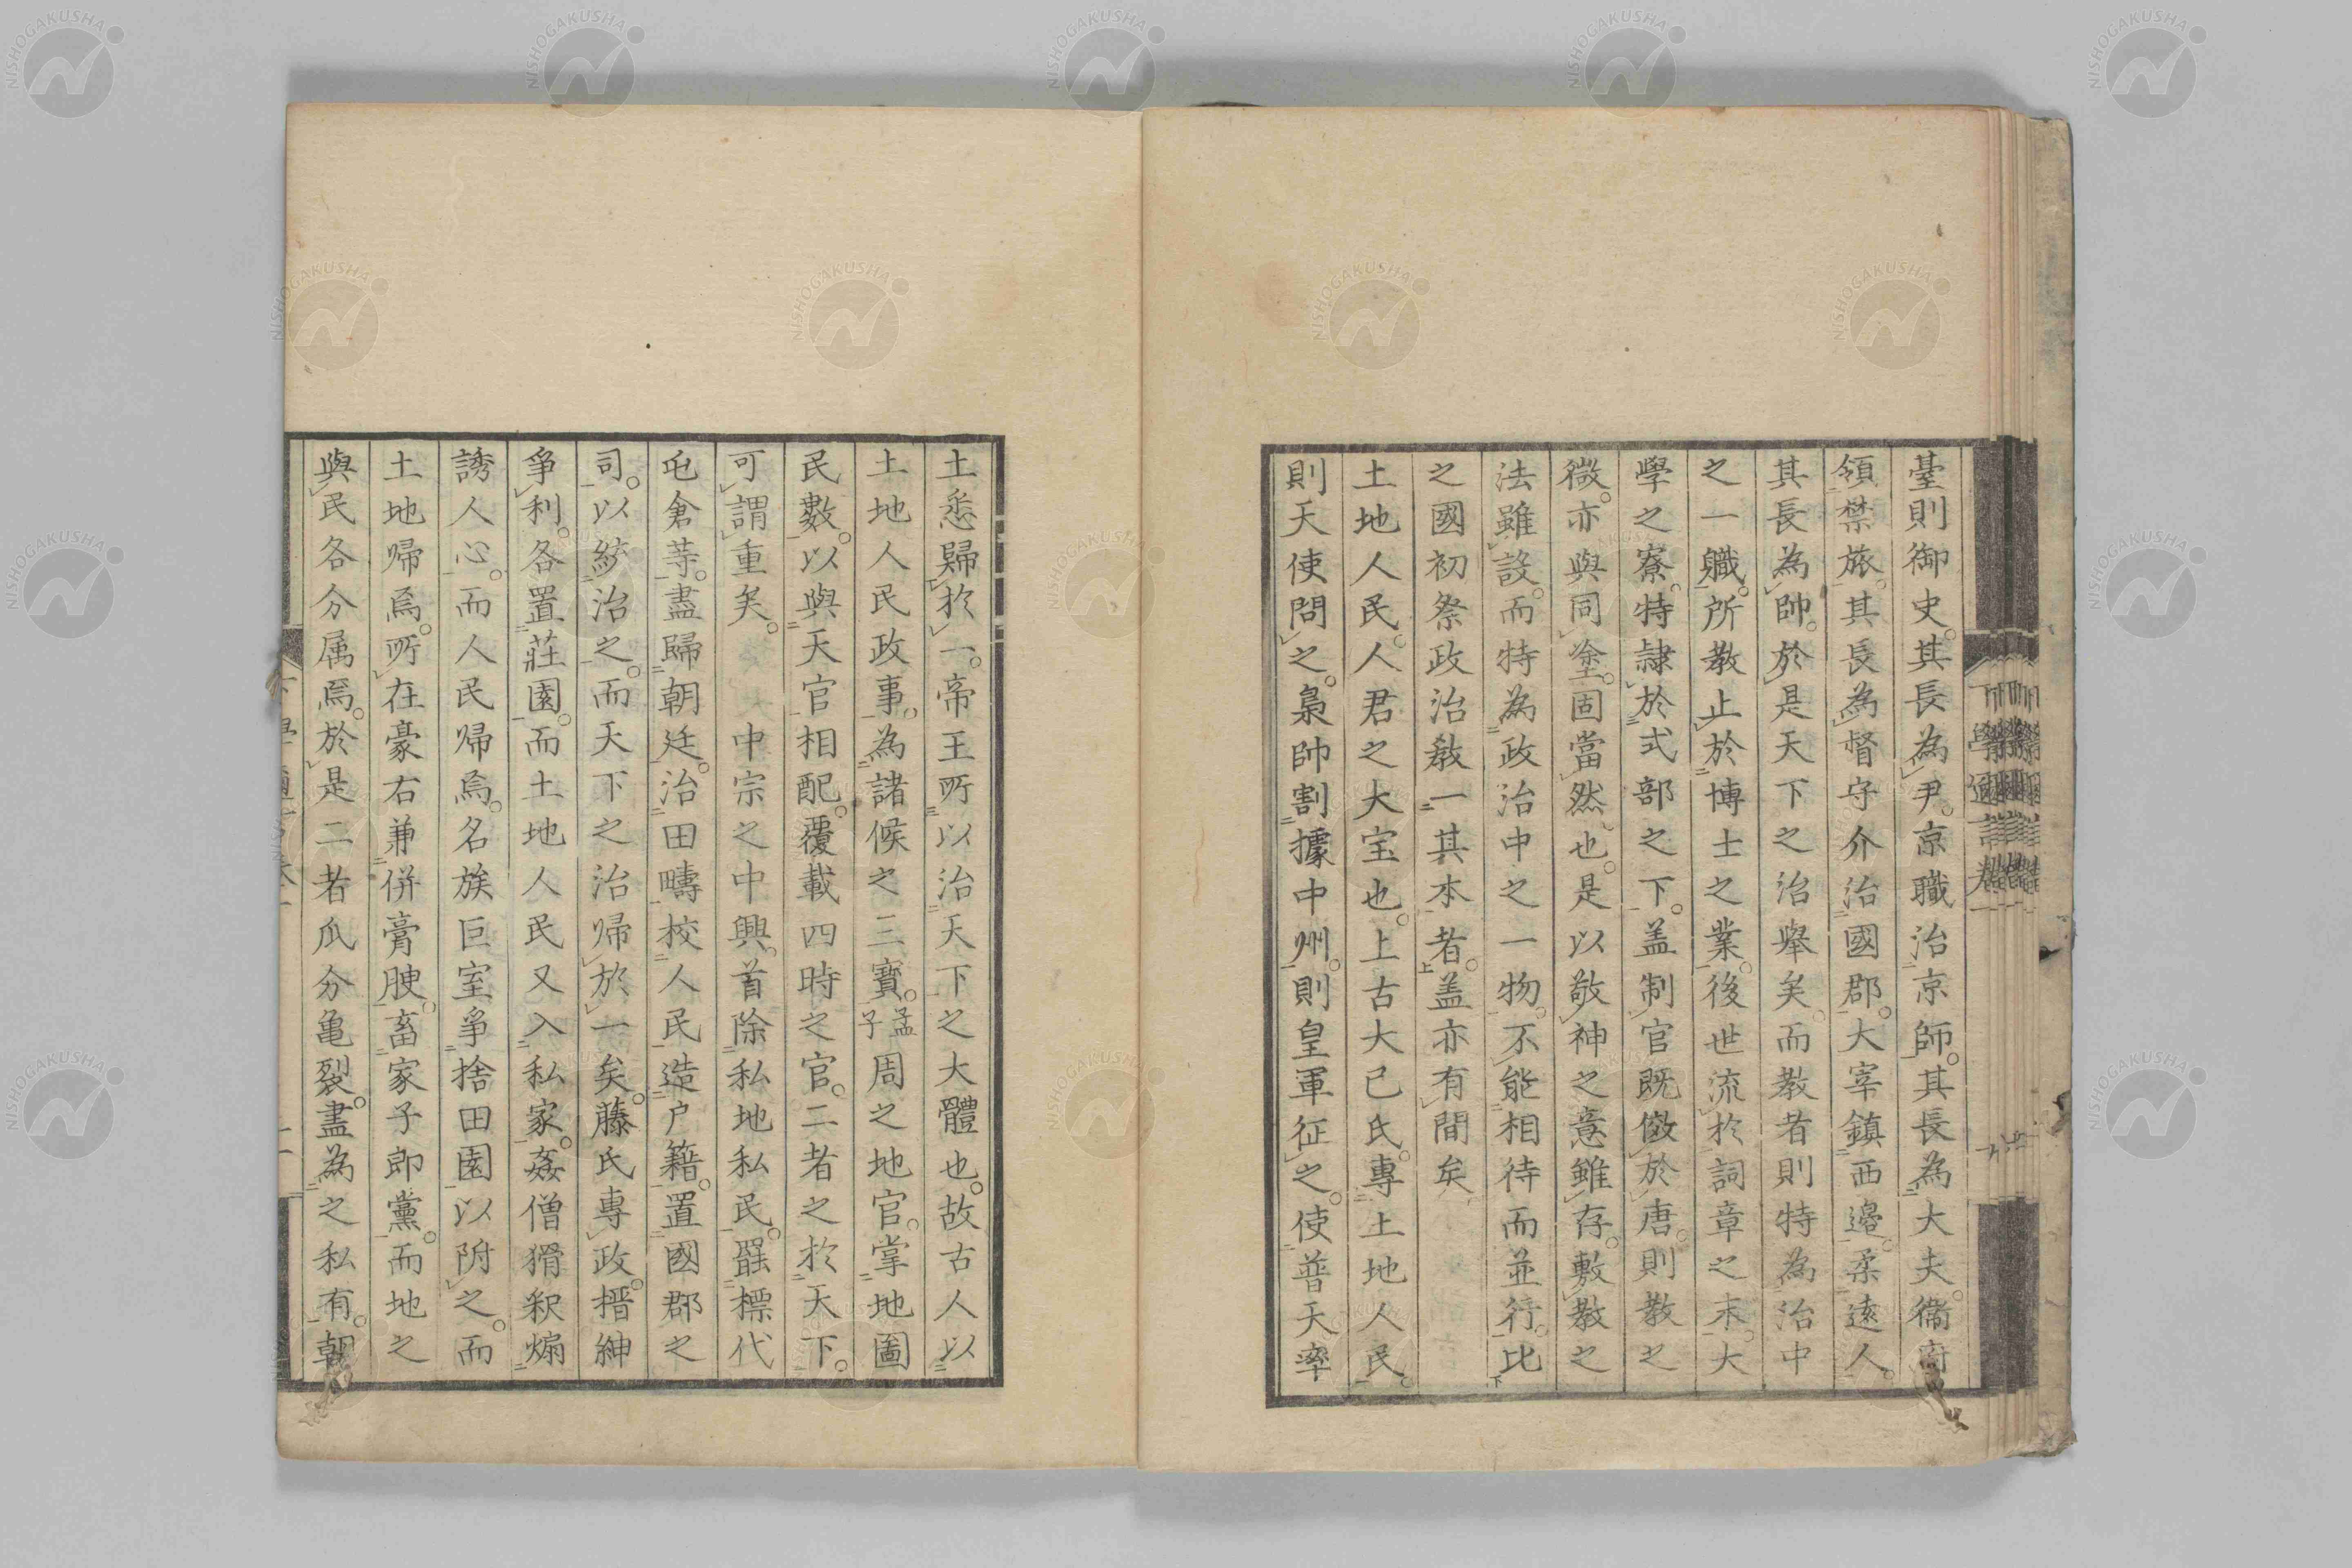 臺則御史。其長為尹。京職治京師。其長為大夫。衞府
領禁旅。其長為督。守介治國郡。大宰鎮西邊。柔遠人。
其長為帥。於是天下之治舉矣。而教者則特為治中
之一職。所教止於博士之業。後世流於詞章之末。大
學之寮。特隷於式部之下。盖制官既倣於唐。則教之
微。亦與同塗。固當然也。是以敬神之意雖存。敷教之
法雖設。而特為政治中之一物。不能相待而並行。比
之國初祭政治教一其本者。盖亦有間矣
土地人民。人君之大宝也。上古大己氏。專土地人民。
則天使問之。梟帥割據中州。則皇軍征之。使普天率
土悉歸於一。帝王所以治天下之大體也。故古人以
土地人民政事。為諸侯之三寶。孟子周之地官。掌地圖
民數。以與天官相配。覆載四時之官。二者之於天下。
可謂重矣。中宗之中興。首除私地私民。罷標代
屯倉等。盡歸朝廷。治田疇校人民造户籍。置國郡之
司。以統治之。而天下之治帰於一矣。藤氏專政。搢紳
爭利。各置莊園。而土地人民又入私家。姦僧猾釈煽
誘人心。而人民帰焉。名族巨室爭捨田園以附之。而
土地帰焉。所在豪右兼併膏腴。畜家子郎黨。而地之
與民各分属焉。於是二者瓜分亀裂。盡為之私有。朝